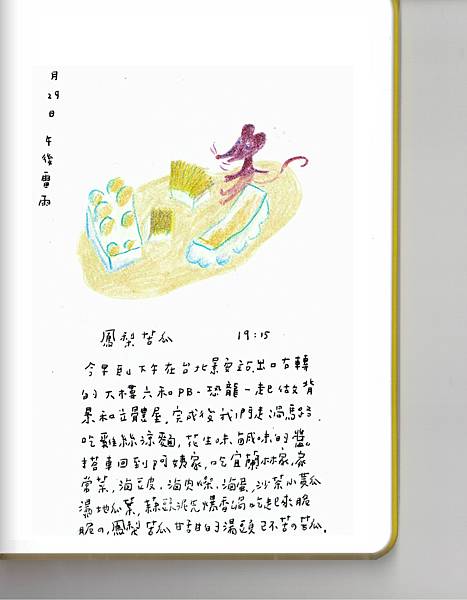 月29日 午後雷雨
鳳梨苦瓜 19:15
今早到下午在台北景安站出口右轉
的大樓六和PB、恐龍一起做背
景和立體屋。完成後我們走過馬路
吃雞絲涼麵，花生味鹹味的醬。
搭車回到阿姨家，吃宜蘭林家，家
常菜，滷豆皮、滷肉燥、滷蛋，沙茶小黃瓜
湯地瓜葉，蒜頭泥先爆香過吃起來脆
脆の，鳳梨苦瓜甘甜的湯頭已不苦の苦瓜。